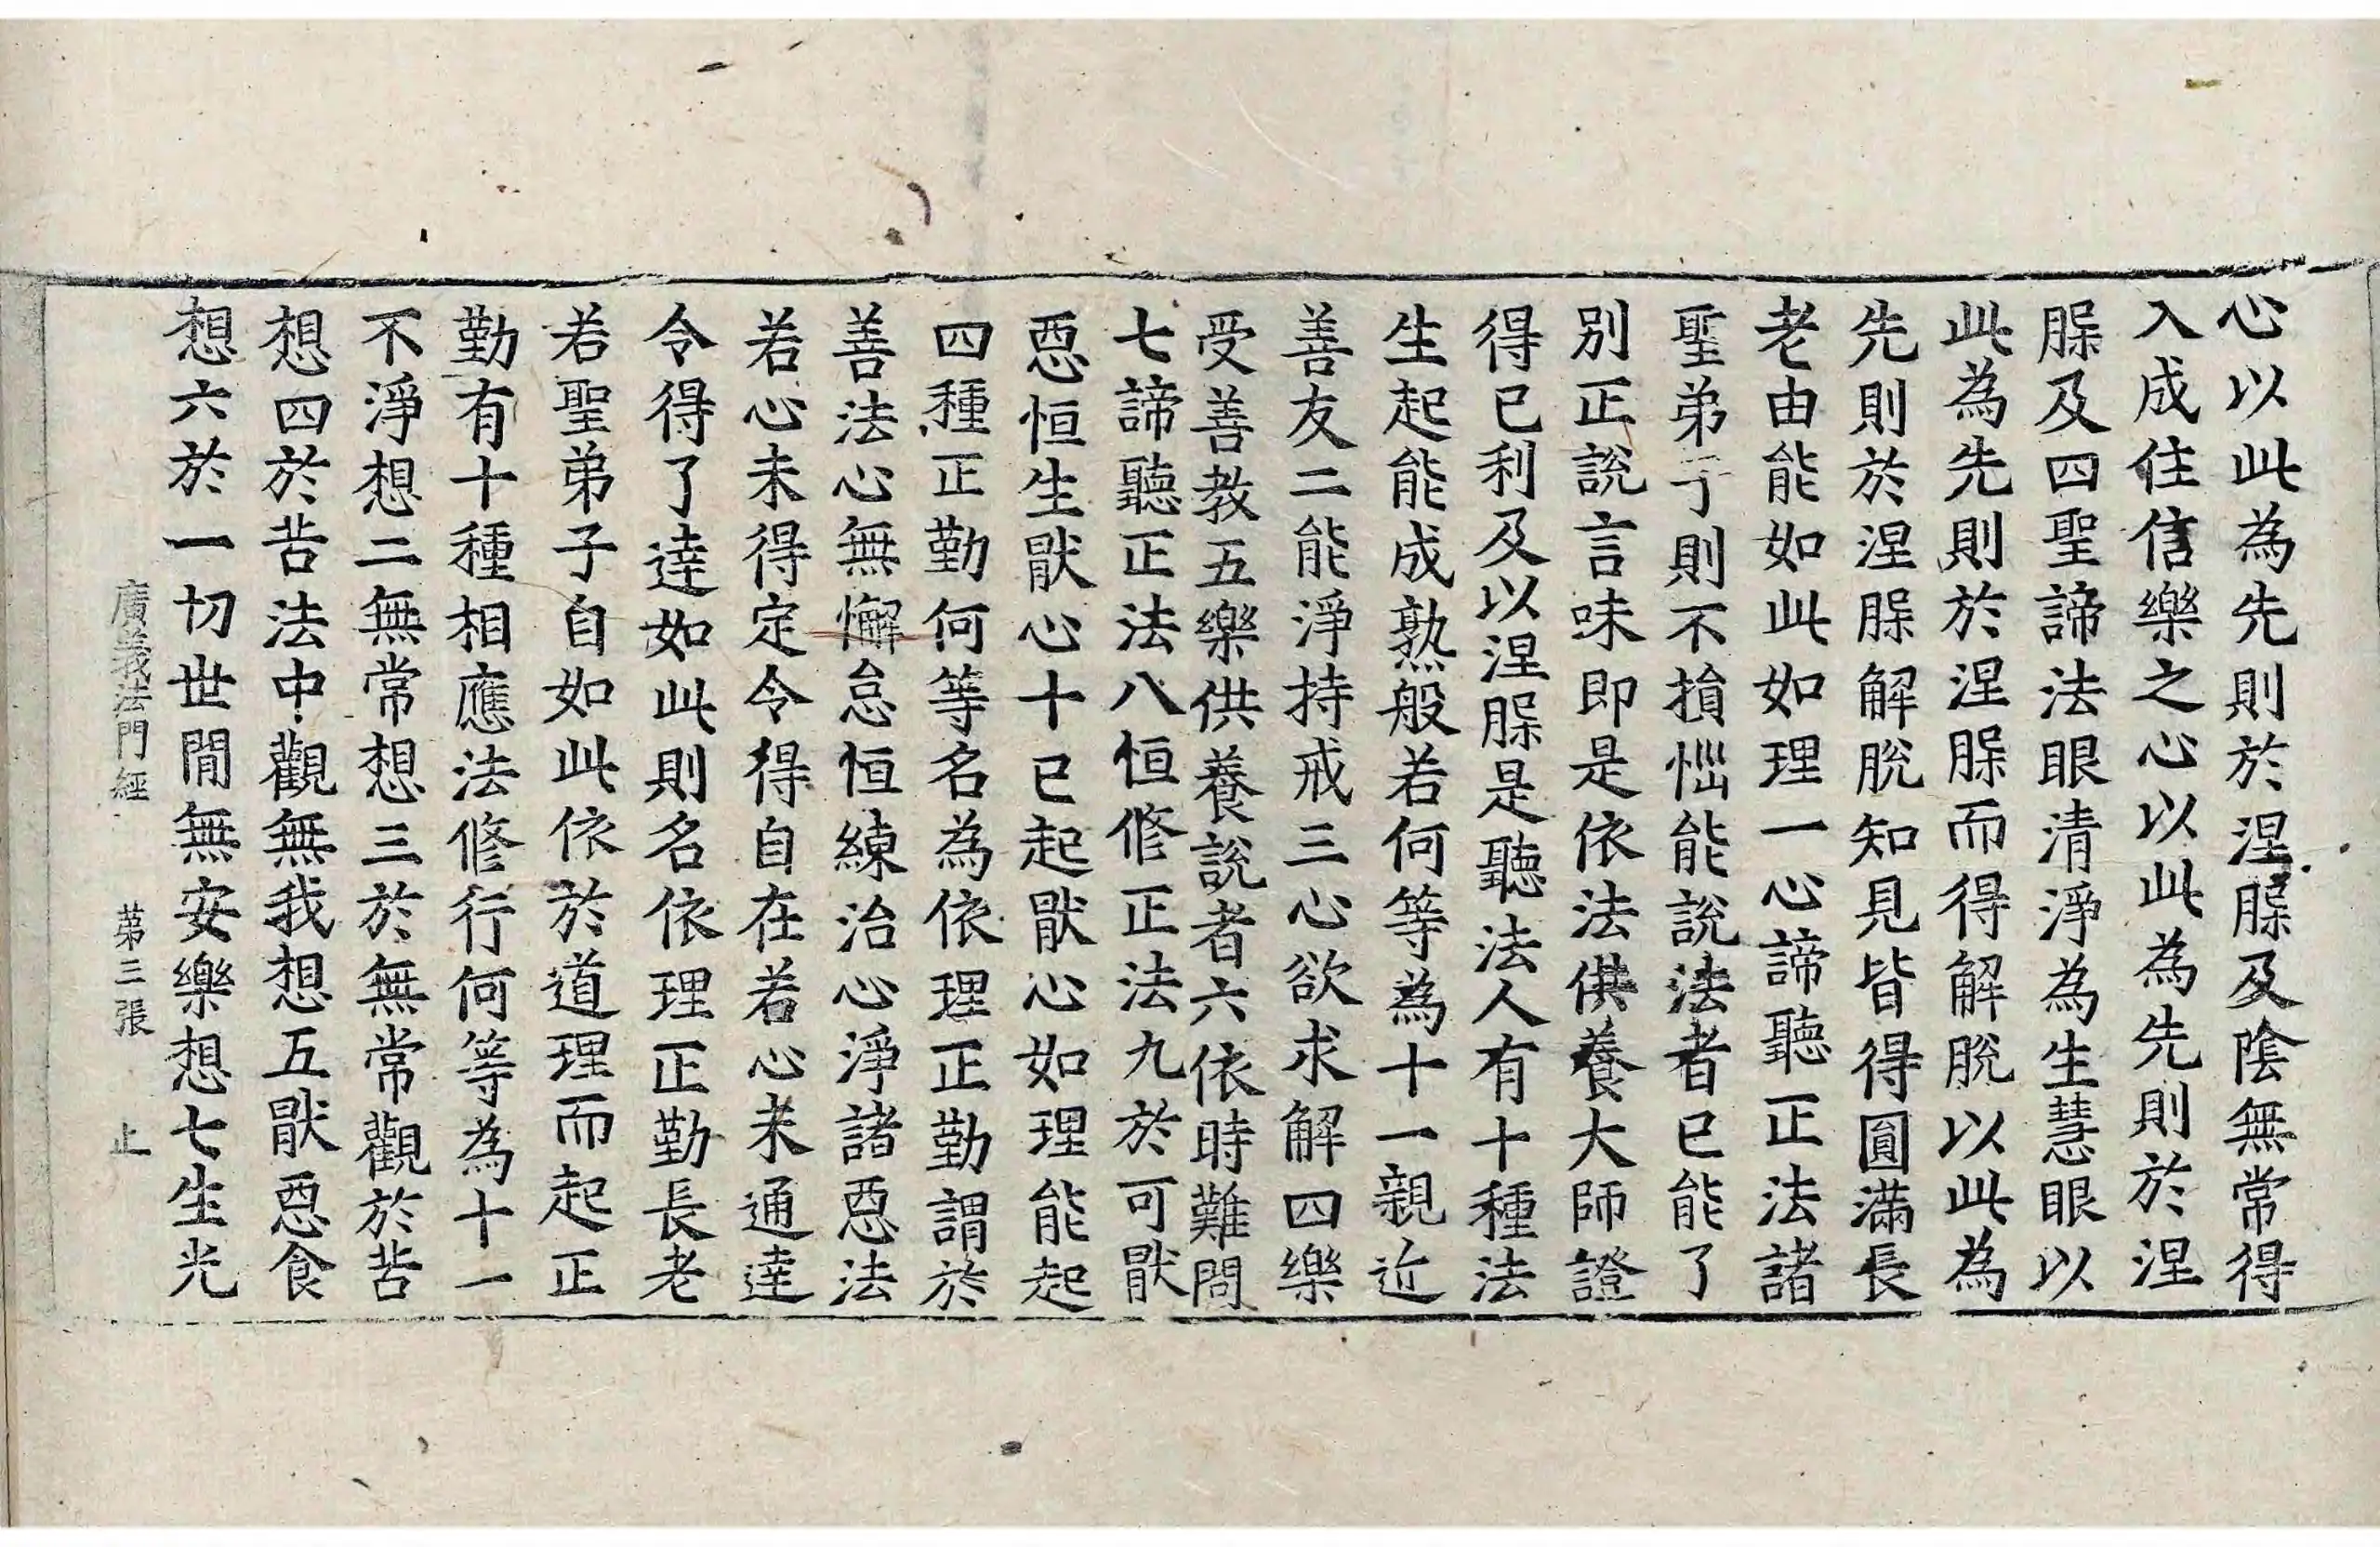 心以此為先則於涅槃及陰無常得
入成住信樂之心以此為先則於涅
槃及四聖諦法眼清淨為生慧眼以
此為先則於涅槃而得解脫以此為
先則於涅槃解脫知見皆得圓滿長
老由能如此如理一心諦聽正法諸
聖弟子則不損惱能說法者已能了
別正說言味即是依法供養大師證
得已利及以涅槃是聽法人有十種法
生起能成熟般若何等為十一親近
善友二能淨持戒三心欲求解四樂
受善教五樂供養說者六依時難問
七諦聽正法八恒修正法九於可猒
惡恒生猒心十已起猒心如理能起
四種正勤何等名為依理正勤謂於
善法心無懈怠恒練治心淨諸惡法
若心未得定令得自在若心未通達
令得了達如此則名依理正勤長老
若聖弟子自如此依於道理而起正
勤有十種相應法修行何等為十一
不淨想二無常想三於無常觀於苦
想四於苦法中觀無我想五猒惡食
想六於一切世間無安樂想七生光
廣義法門經 第三張 止